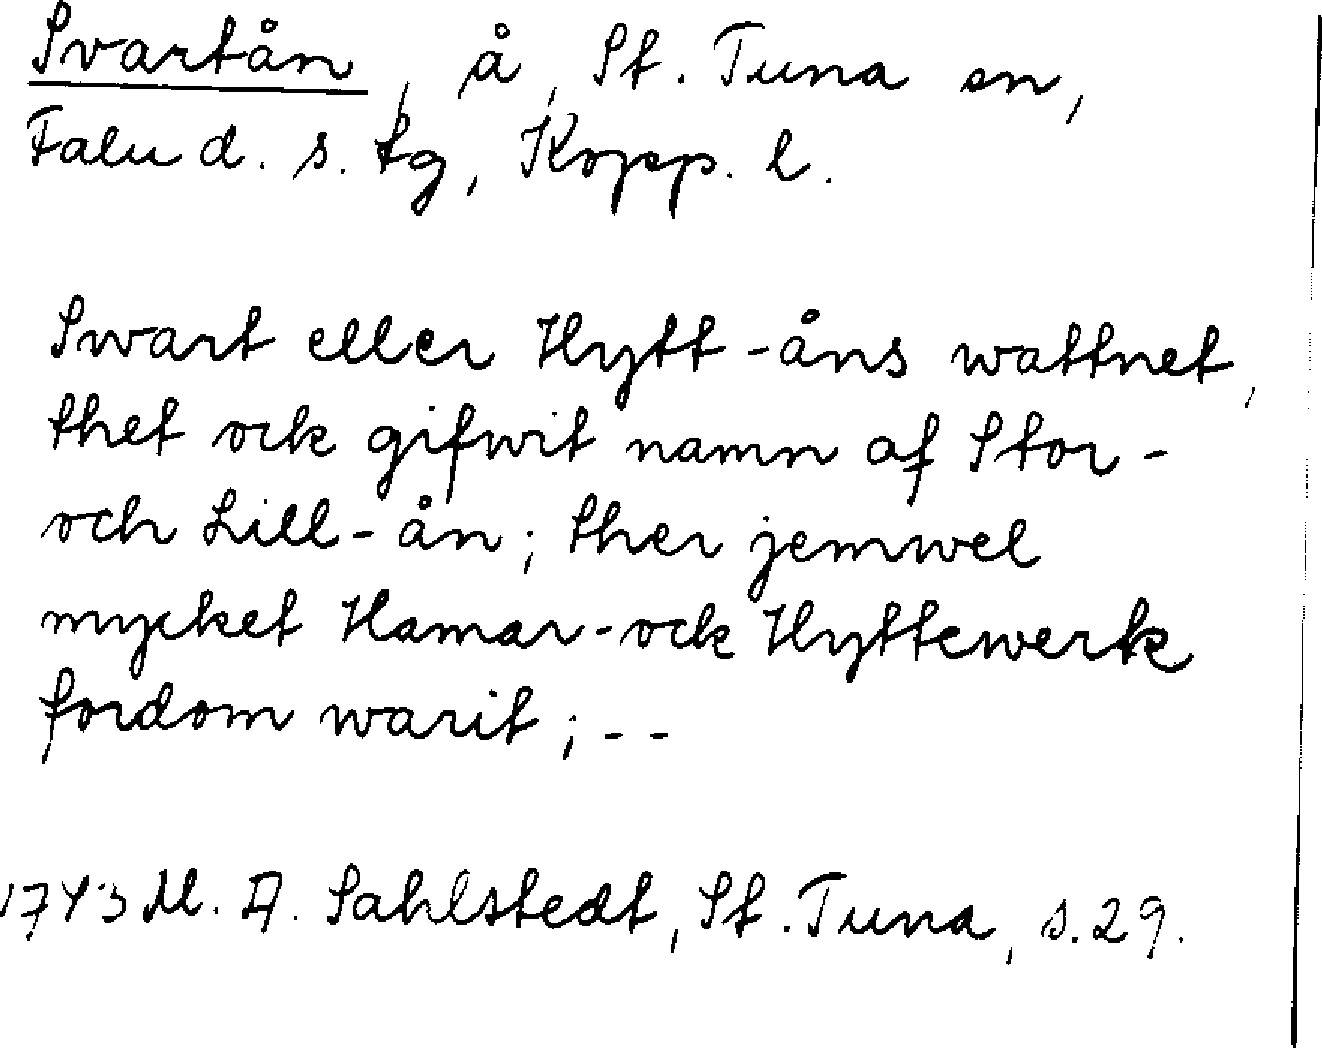 Svartån, å, St. Tuna sn,
Falu d. s. tg, Kopp. l.
Swart eller Hytt-åns wattnet,
thet ock gifwit namn af Stor-
och Lill-ån; ther jemwel
mycket Hamar-ock Hyttewerk
fordom warit; --
1743 M. A. Sahlstedt, St. Tuna, s. 29.